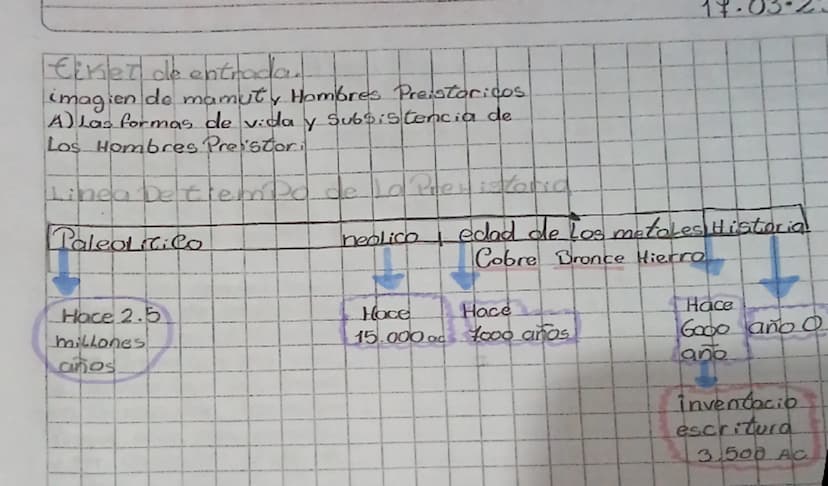 17.03.2
tiket de entrada.
imagien de mamut y Hombres Preistoricos
A) Las formas de vida y Subsistencia de
Los Hombres Preistor.
Linea De tiempo de La Prehistoria
Paleolitico neolico edad de los metales Historia
Cobre Bronce Hierro
Hace 2.5
millones
años
Hace
15.000 ac
Hace
7000 años
Hace
6000
año
año 0
invendacio
escritura
3,500 AC